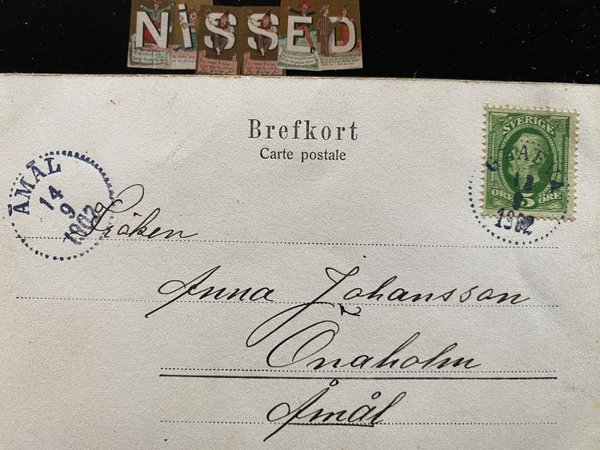 NiSSED
Brefkort
Carte postale
SVERIGE
5
ÖRE ÖRE
1902
ÅMÅL
14
9
1902
Fröken
Anna Johansson
Onaholm
Åmål